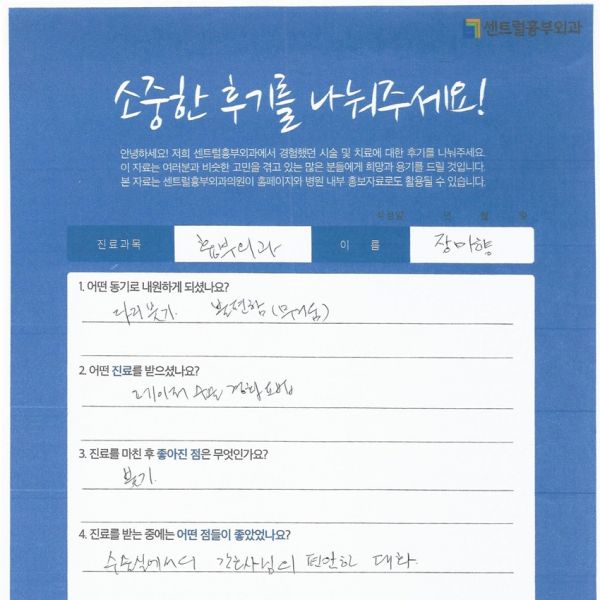 센트럴흉부외과
소중한 후기를 나눠주세요!
안녕하세요! 저희 센트럴흉부외과에서 경험했던 시술 및 치료에 대한 후기를 나눠주세요.
이 자료는 여러분과 비슷한 고민을 겪고 있는 많은 분들에게 희망과 용기를 드릴 것입니다.
본 자료는 센트럴흉부외과의원이 홈페이지와 병원 내부 홍보자료로도 활용될 수 있습니다.
작성일 년 월 일
진료과목 흉부외과 이 름 장미향
1. 어떤 동기로 내원하게 되셨나요?
다리붓기. 불편함 (무거움)
2. 어떤 진료를 받으셨나요?
레이저 수술 경화요법
3. 진료를 마친 후 좋아진 점은 무엇인가요?
붓기.
4. 진료를 받는 중에는 어떤 점들이 좋았었나요?
수술실에서 간호사님의 편안한 대화.